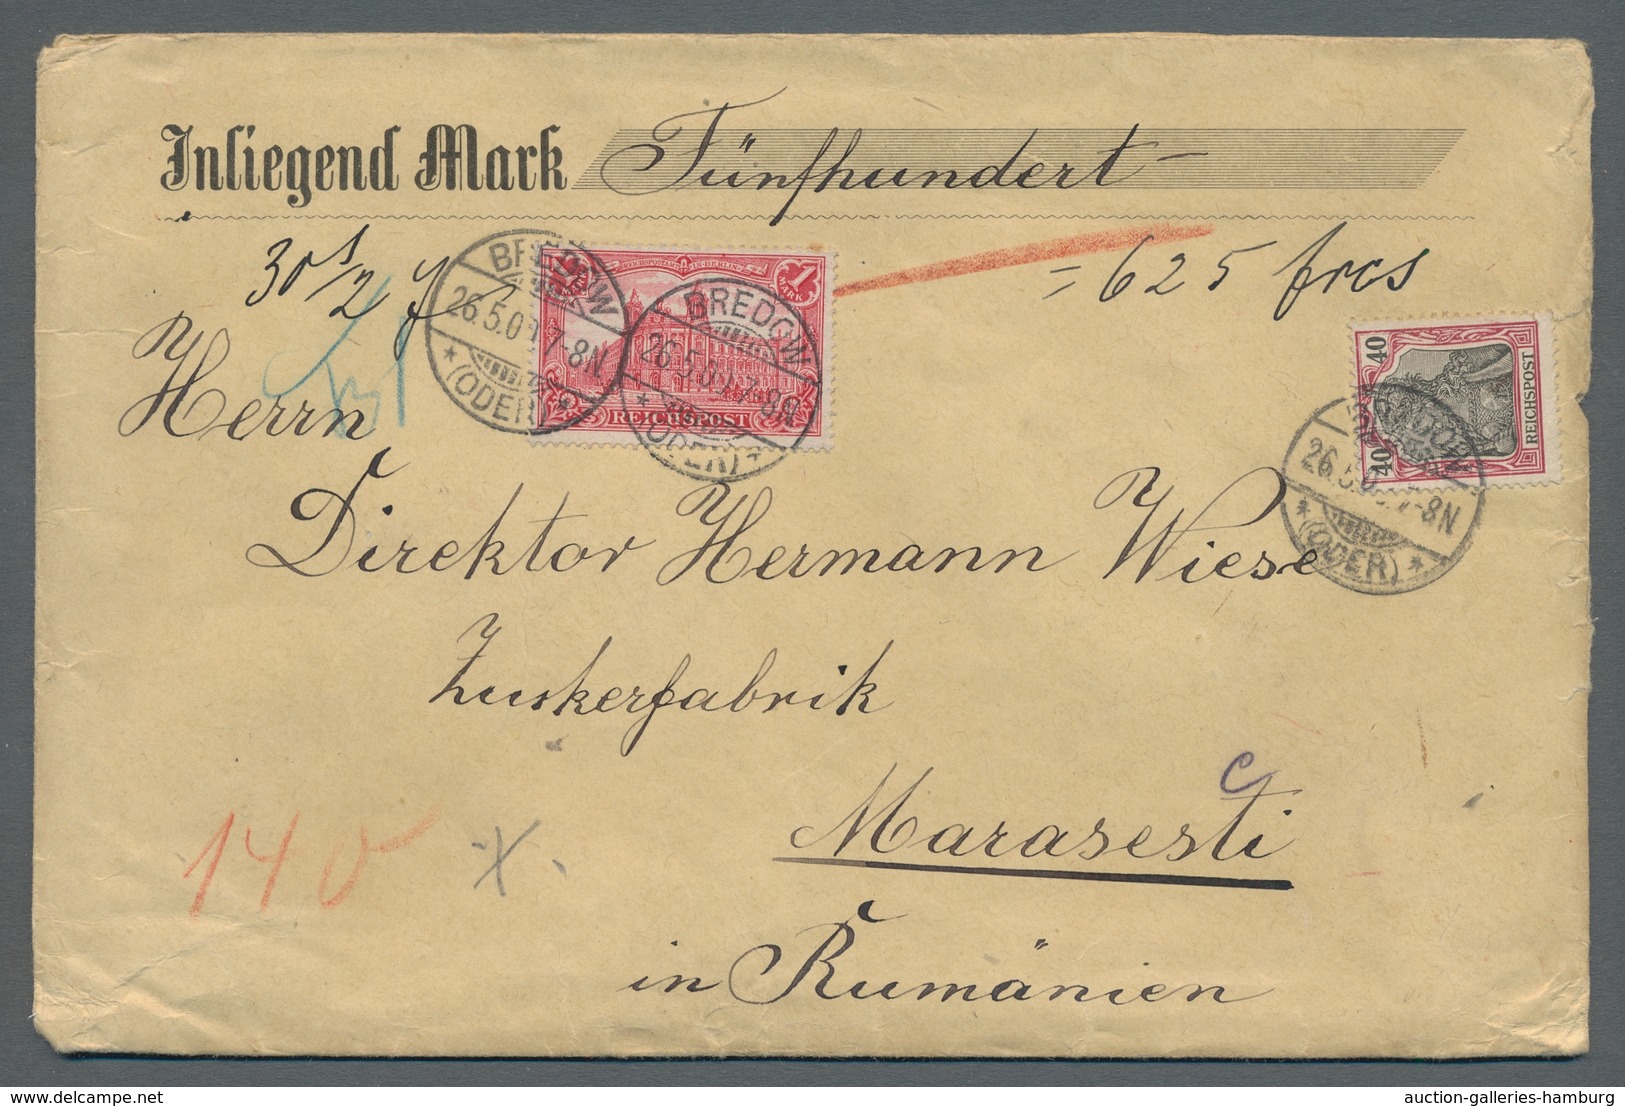 Inliegend Mark Fünfhundert
30 1/2 g = 625 frcs
1 MARK REICHSPOSTAMT IN BERLIN 1 MARK
REICHSPOST
BREDOW
26.5.0 7-8N
* (ODER) *
BREDOW
26.5.0 7-8N
* (ODER) *
40 REICHSPOST 40
BREDOW
26.5.0 7-8N
* (ODER) *
Herrn
Direktor Hermann Wiese
Zuckerfabrik
c
Marasesti
140 x.
in Rumänien
auction-galleries-hamburg